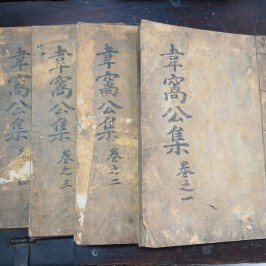 韋窩公集 卷之一
韋窩公集 卷之二
韋窩公集 卷之三
韋窩公集 卷